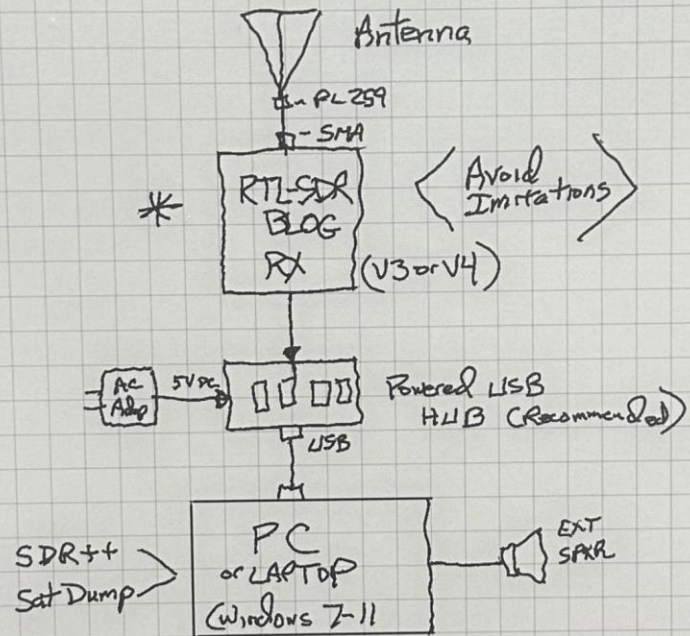 Antenna
PL259
SMA
RTL-SDR
BLOG
RX
(V3 or V4)
Avoid
Imitations
AC
Adap
5VDC
Powered USB
HUB (Recommended)
USB
PC
or LAPTOP
(Windows 7-11
SDR++
SatDump
EXT
SPKR